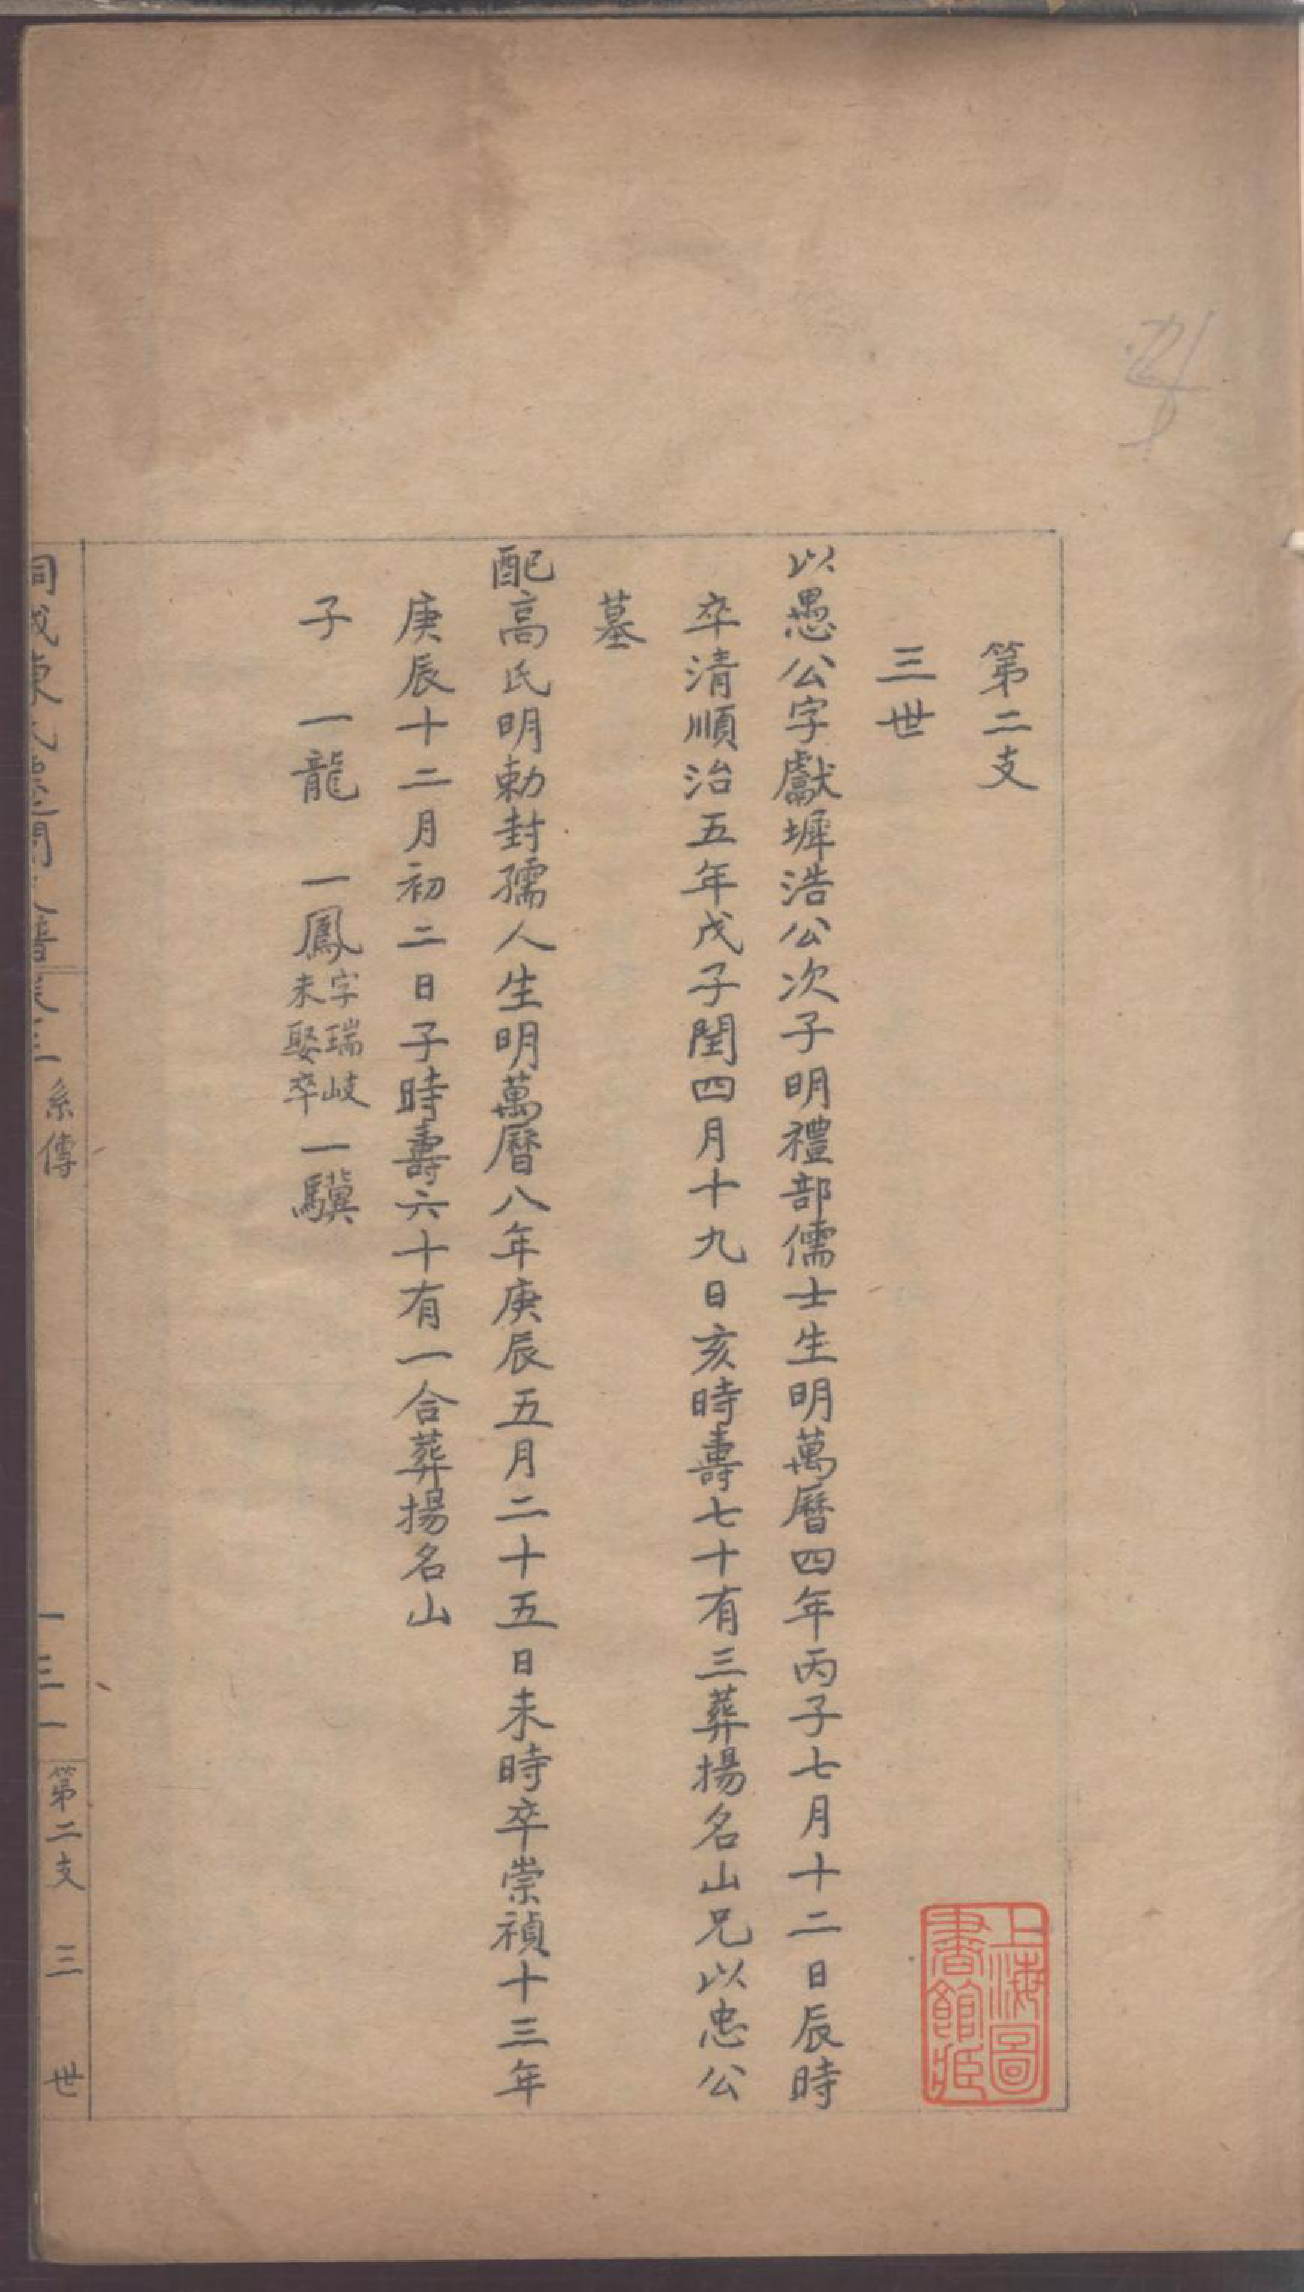 第二支
三世
以愚公字獻墀浩公次子明禮部儒士生明萬曆四年丙子七月十二日辰時
卒清順治五年戊子閏四月十九日亥時壽七十有三葬揚名山兄以忠公
墓
配高氏明勅封孺人生明萬曆八年庚辰五月二十五日未時卒崇禎十三年
庚辰十二月初二日子時壽六十有一合葬揚名山
子 一龍 一鳳 字瑞岐未娶卒 一驥
系傳
一三一
第二支 三世
上海圖書館藏